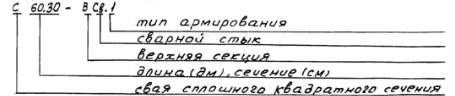 С 60.30 - В Св. 1
тип армирования
сварной стык
верхняя секция
длина (дм), сечение (см)
свая сплошного квадратного сечения